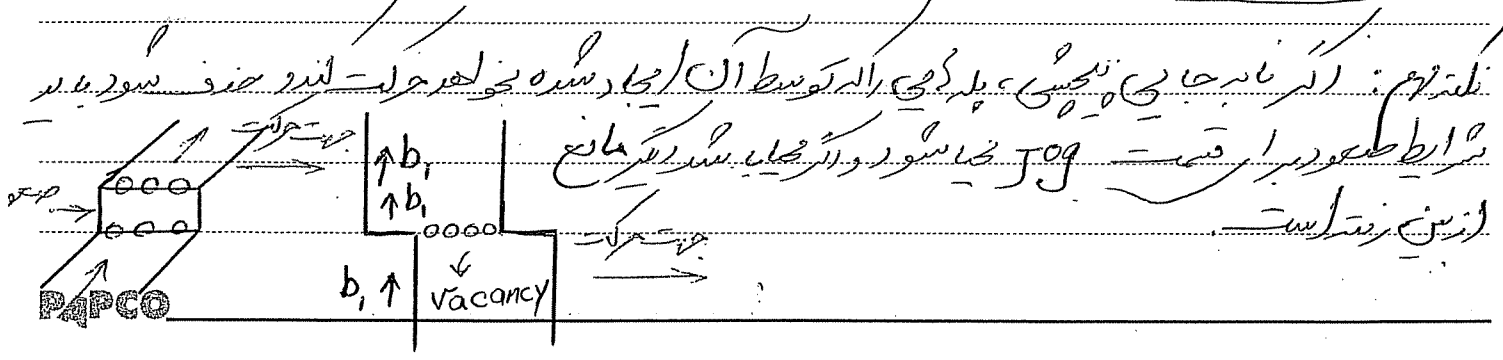 نکته مهم: اگر نابه جایی پیچشی، پله هایی را که توسط آن ایجاد شده بخواهد حرکت کند و حذف شود باید
شرایط صعود برای قسمت Jog محیا شود و اگر محیا شد دیگر مانع
از بین رفته است.
جهت حرکت
صعود
b₁
b₁
جهت حرکت
b₁
vacancy
PAPCO